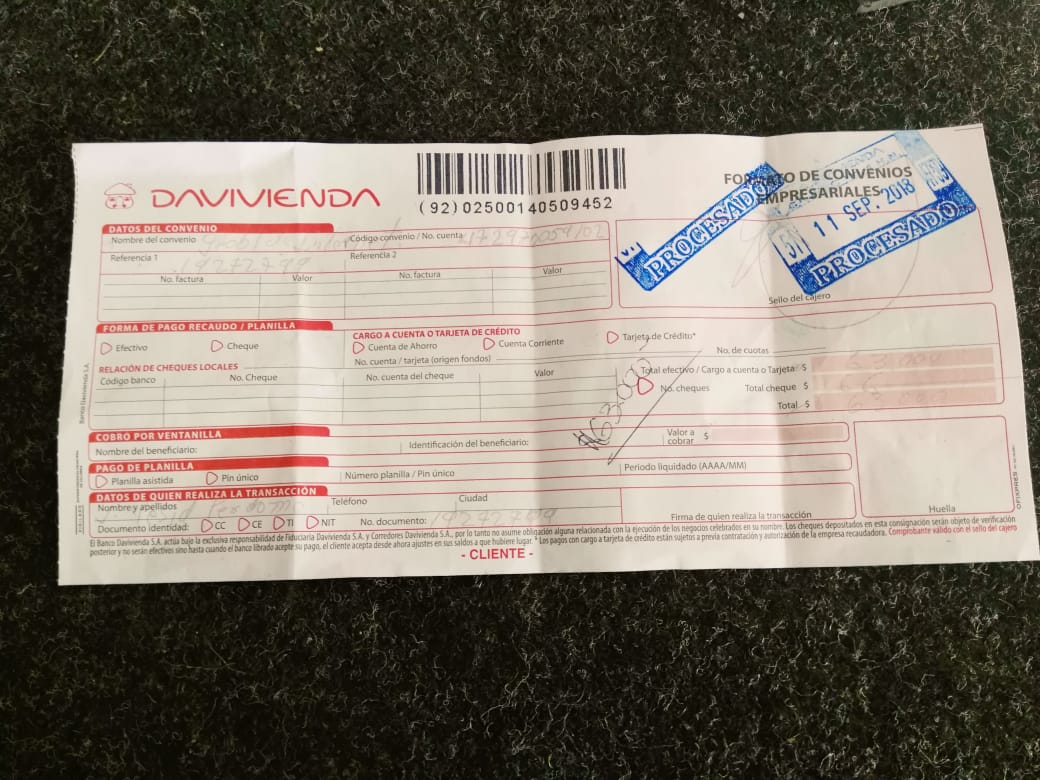 DAVIVIENDA
(92)02500140509452
FORMATO DE CONVENIOS
EMPRESARIALES
PROCESADO
51
11 SEP. 2018
PROCESADO
DATOS DEL CONVENIO
Nombre del convenio
Código convenio / No. cuenta
Referencia 1
Referencia 2
No. factura Valor No. factura Valor
Sello del cajero
FORMA DE PAGO RECAUDO / PLANILLA
Efectivo Cheque
CARGO A CUENTA O TARJETA DE CRÉDITO
Cuenta de Ahorro Cuenta Corriente Tarjeta de Crédito*
No. cuenta / tarjeta (origen fondos)
No. de cuotas
RELACIÓN DE CHEQUES LOCALES
Código banco No. Cheque No. cuenta del cheque Valor
Total efectivo / Cargo a cuenta o Tarjeta: $
No. cheques Total cheque $
Total $
Banco Davivienda S.A.
COBRO POR VENTANILLA
Nombre del beneficiario: Identificación del beneficiario: Valor a cobrar $
PAGO DE PLANILLA
Planilla asistida Pin único Número planilla / Pin único Periodo liquidado (AAAA/MM)
DATOS DE QUIEN REALIZA LA TRANSACCIÓN
Nombre y apellidos Teléfono Ciudad
Documento identidad: CC CE TI NIT No. documento:
Firma de quien realiza la transacción
Huella
El Banco Davivienda S.A. actúa bajo la exclusiva responsabilidad de Fiduciaria Davivienda S.A., y Corredores Davivienda S.A., por lo tanto no asume obligación alguna relacionada con la ejecución de los negocios celebrados en su nombre. Los cheques depositados en esta consignación serán objeto de verificación
posterior y no serán efectivos sino hasta cuando el banco librado acepte su pago, el cliente acepta desde ahora ajustes en sus saldos a que hubiere lugar. * Los pagos con cargo a tarjeta de crédito están sujetos a previa contratación y autorización de la empresa recaudadora. Comprobante válido con el sello del cajero
- CLIENTE -